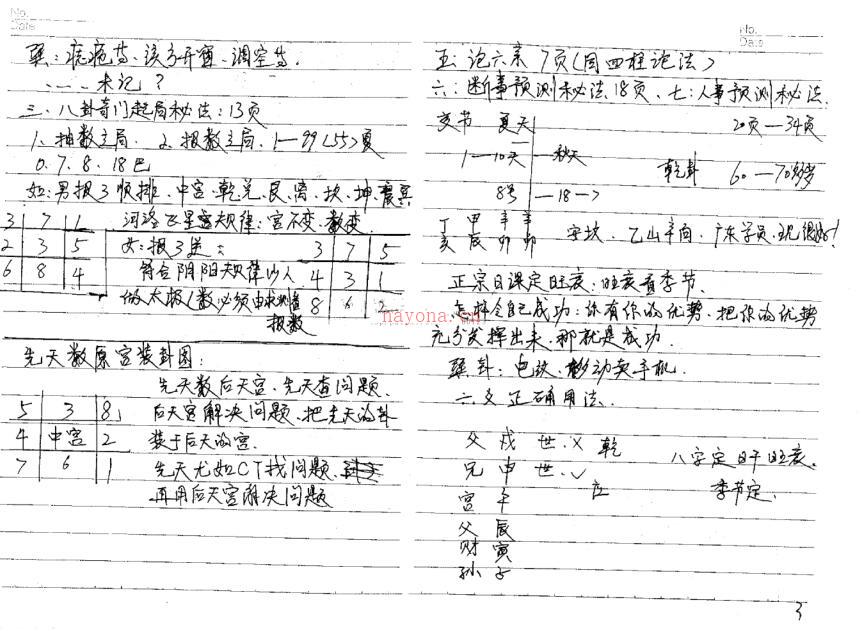 No.
Date
巽：疣疮节、该方开窗、调空节.
、…… 未记？
三、八卦奇门起局秘法：13页
1、抽数立局. 2、报数立局. 1—99（55）页
0. 7. 8. 18 巴
如：男报3 顺排. 中宫. 乾兑. 艮. 离. 坎. 坤. 震 巽
3 7 1
2 3 5
6 8 4
河洛飞星宫规律：宫不变. 数变.
女：报3 逆：
符合阴阳规律以人
做太极（数必须由求测者
报数
3 7 5
4 3 1
8 6 2
先天数原宫装卦图：
5 3 8
4 中宫 2
7 6 1
先天数后天宫. 先天查问题.
后天宫解决问题. 把先天的卦
装于后天的宫.
先天尤如CT找问题.
再用后天宫解决问题
No.
Date
五：论六亲 7页（同四柱论法）
六：断事预测秘法. 18页. 七：人事预测秘法.
20页—34页
变节 夏天
1—10天 秋天
8号 —18—>
乾卦 60—70多岁
丁 甲 辛 辛
亥 辰 卯 卯
字坎. 乙山辛向. 广东学员. 现很好！
正宗日课定旺衰：旺衰看季节.
怎样令自己成功：你有你的优势. 把你的优势
充分发挥出来. 那就是成功.
巽卦：电纹. 移动卖手机.
六爻正确用法.
父 戌 世. × 乾
兄 申 世. √
官 午 应
父 辰
财 寅
孙 子
八字定日干旺衰.
季节定.
nayona.cn
3